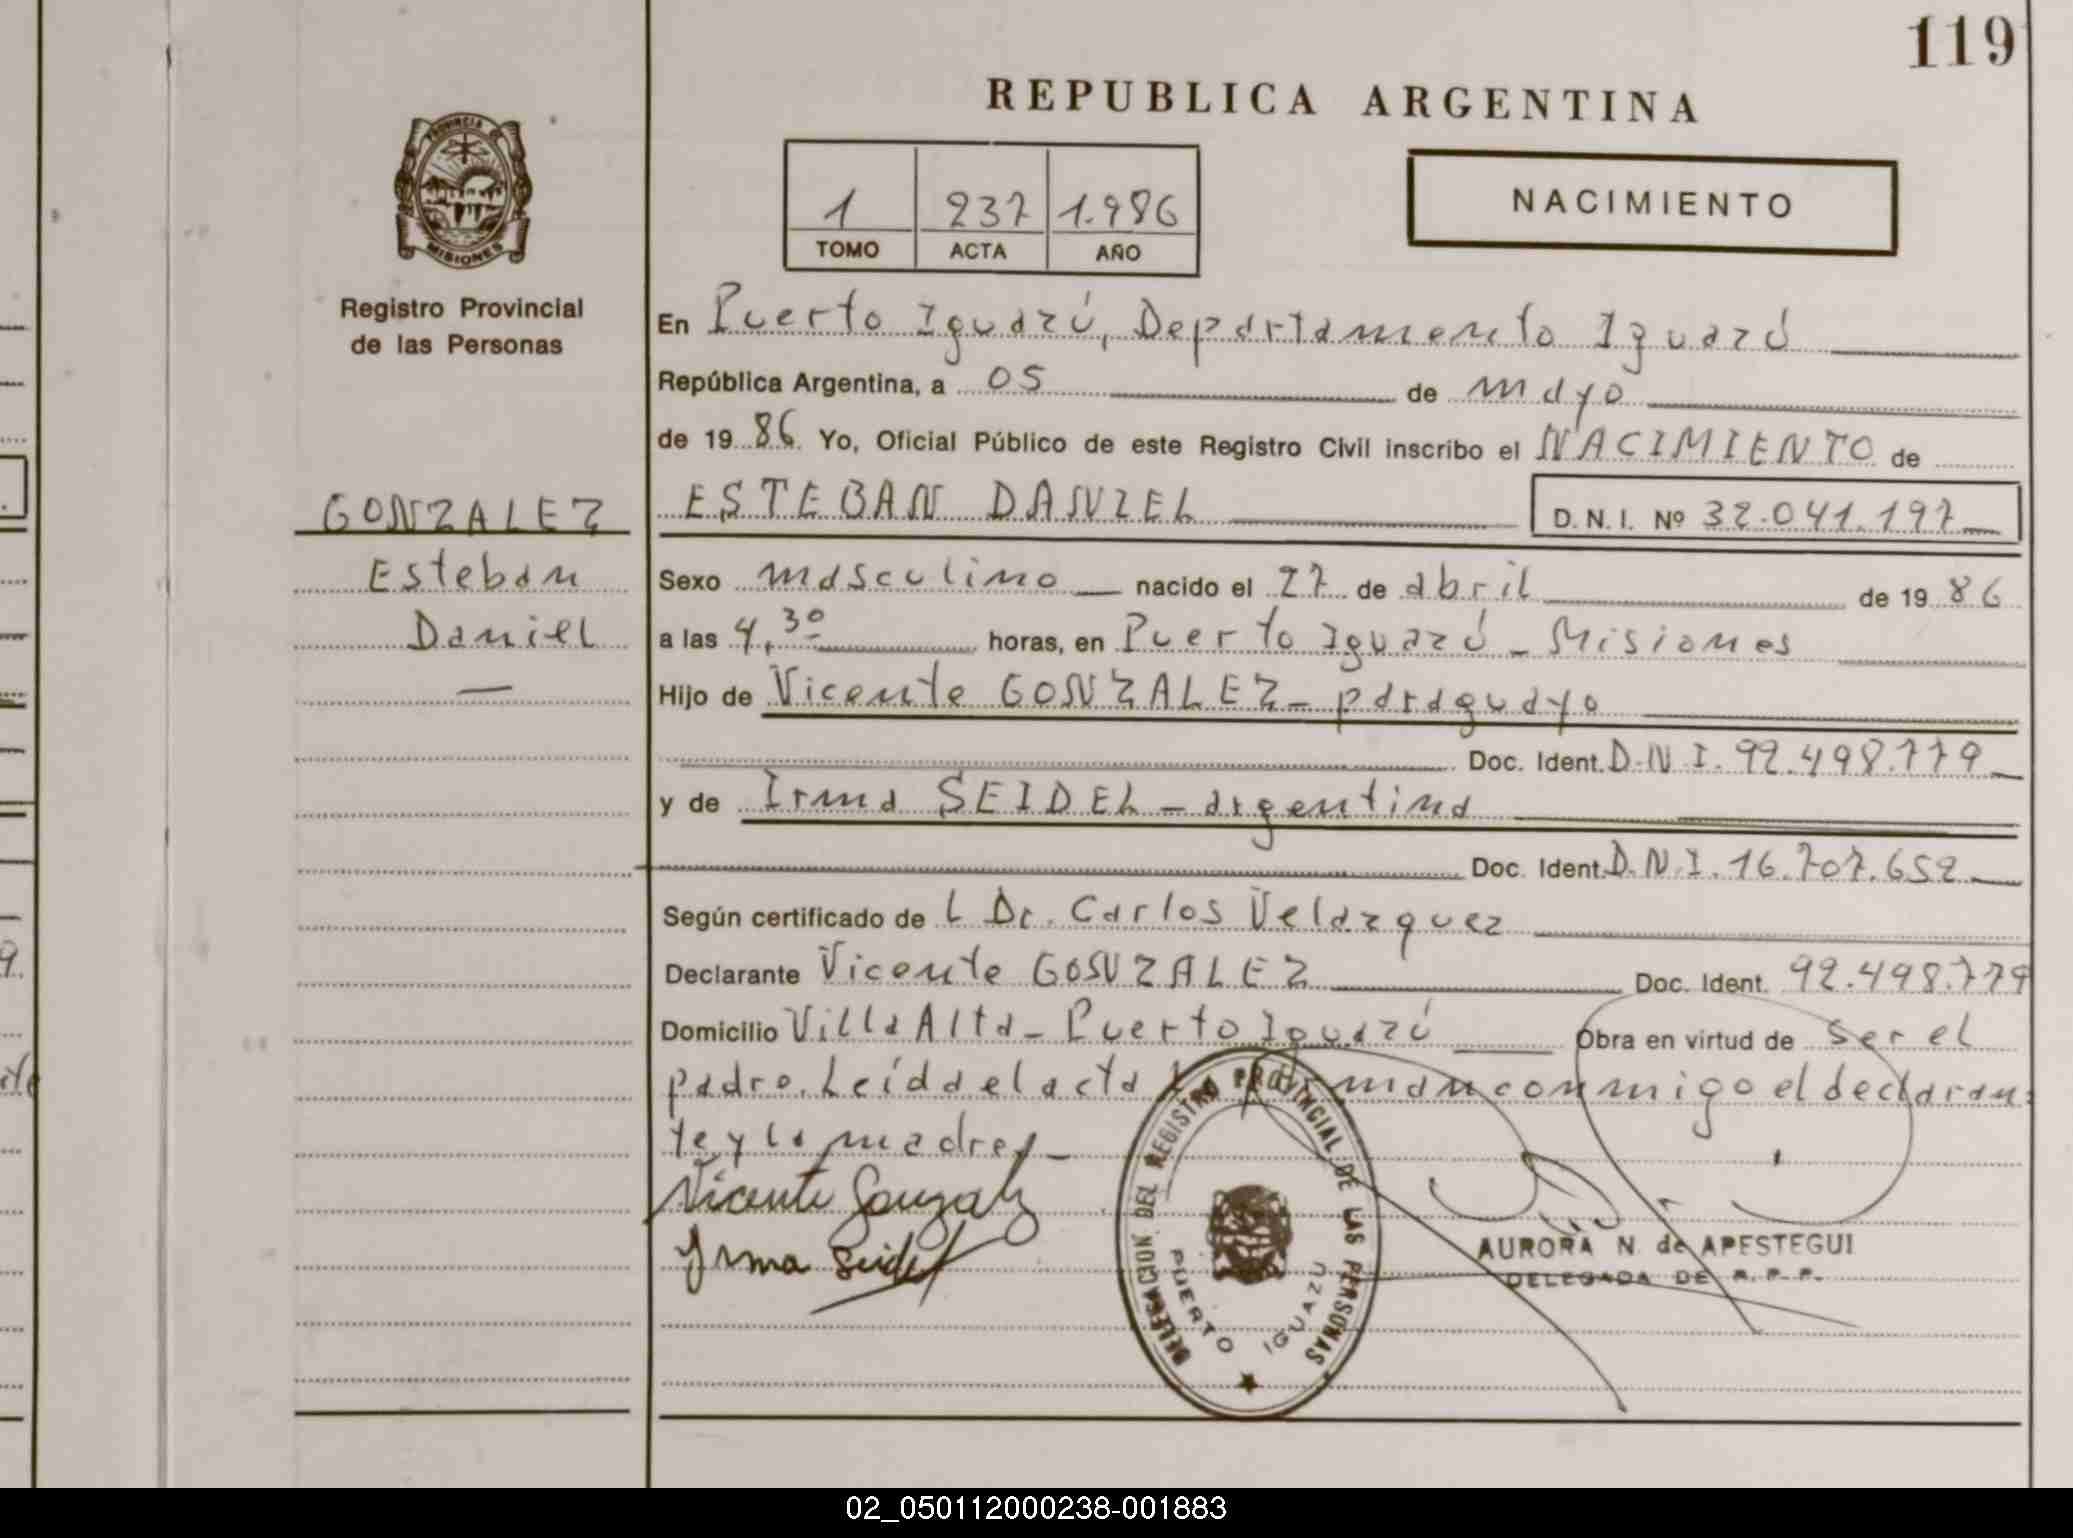 119
REPUBLICA ARGENTINA
1 237 1.986
TOMO ACTA AÑO
NACIMIENTO
PROVINCIA DE
MISIONES
Registro Provincial
de las Personas
GONZALEZ
Esteban
Daniel
En Puerto Iguazú, Departamento Iguazú
República Argentina, a 05 de mayo
de 1986. Yo, Oficial Público de este Registro Civil inscribo el NACIMIENTO de
ESTEBAN DANIEL D.N.I. Nº 32.041.197
Sexo masculino nacido el 27 de abril de 1986
a las 4,30 horas, en Puerto Iguazú - Misiones
Hijo de Vicente GONZALEZ - paraguayo
Doc. Ident. D.N.I. 92.498.779
y de Irma SEIDEL - argentina
Doc. Ident. D.N.I. 16.707.652
Según certificado de L Dr. Carlos Velazquez
Declarante Vicente GONZALEZ Doc. Ident. 92.498.779
Domicilio Villa Alta - Puerto Iguazú Obra en virtud de ser el
padre. Leída el acta firman conmigo el declaran=
te y la madre. -
Vicente Gonzalez
Irma Seidel
DELEGACION DEL REGISTRO PROVINCIAL DE LAS PERSONAS
PUERTO IGUAZU
AURORA N. de APESTEGUI
DELEGADA DE R. P. P.
02_050112000238-001883